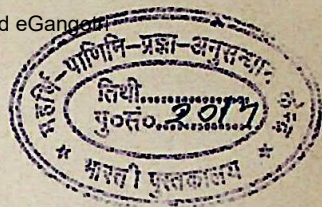 d eGangotri
महर्षि-पाणिनि-प्रज्ञा-अनुसन्धान
तिथी..........
पु०सं० 2017
* भारती पुस्तकालय *